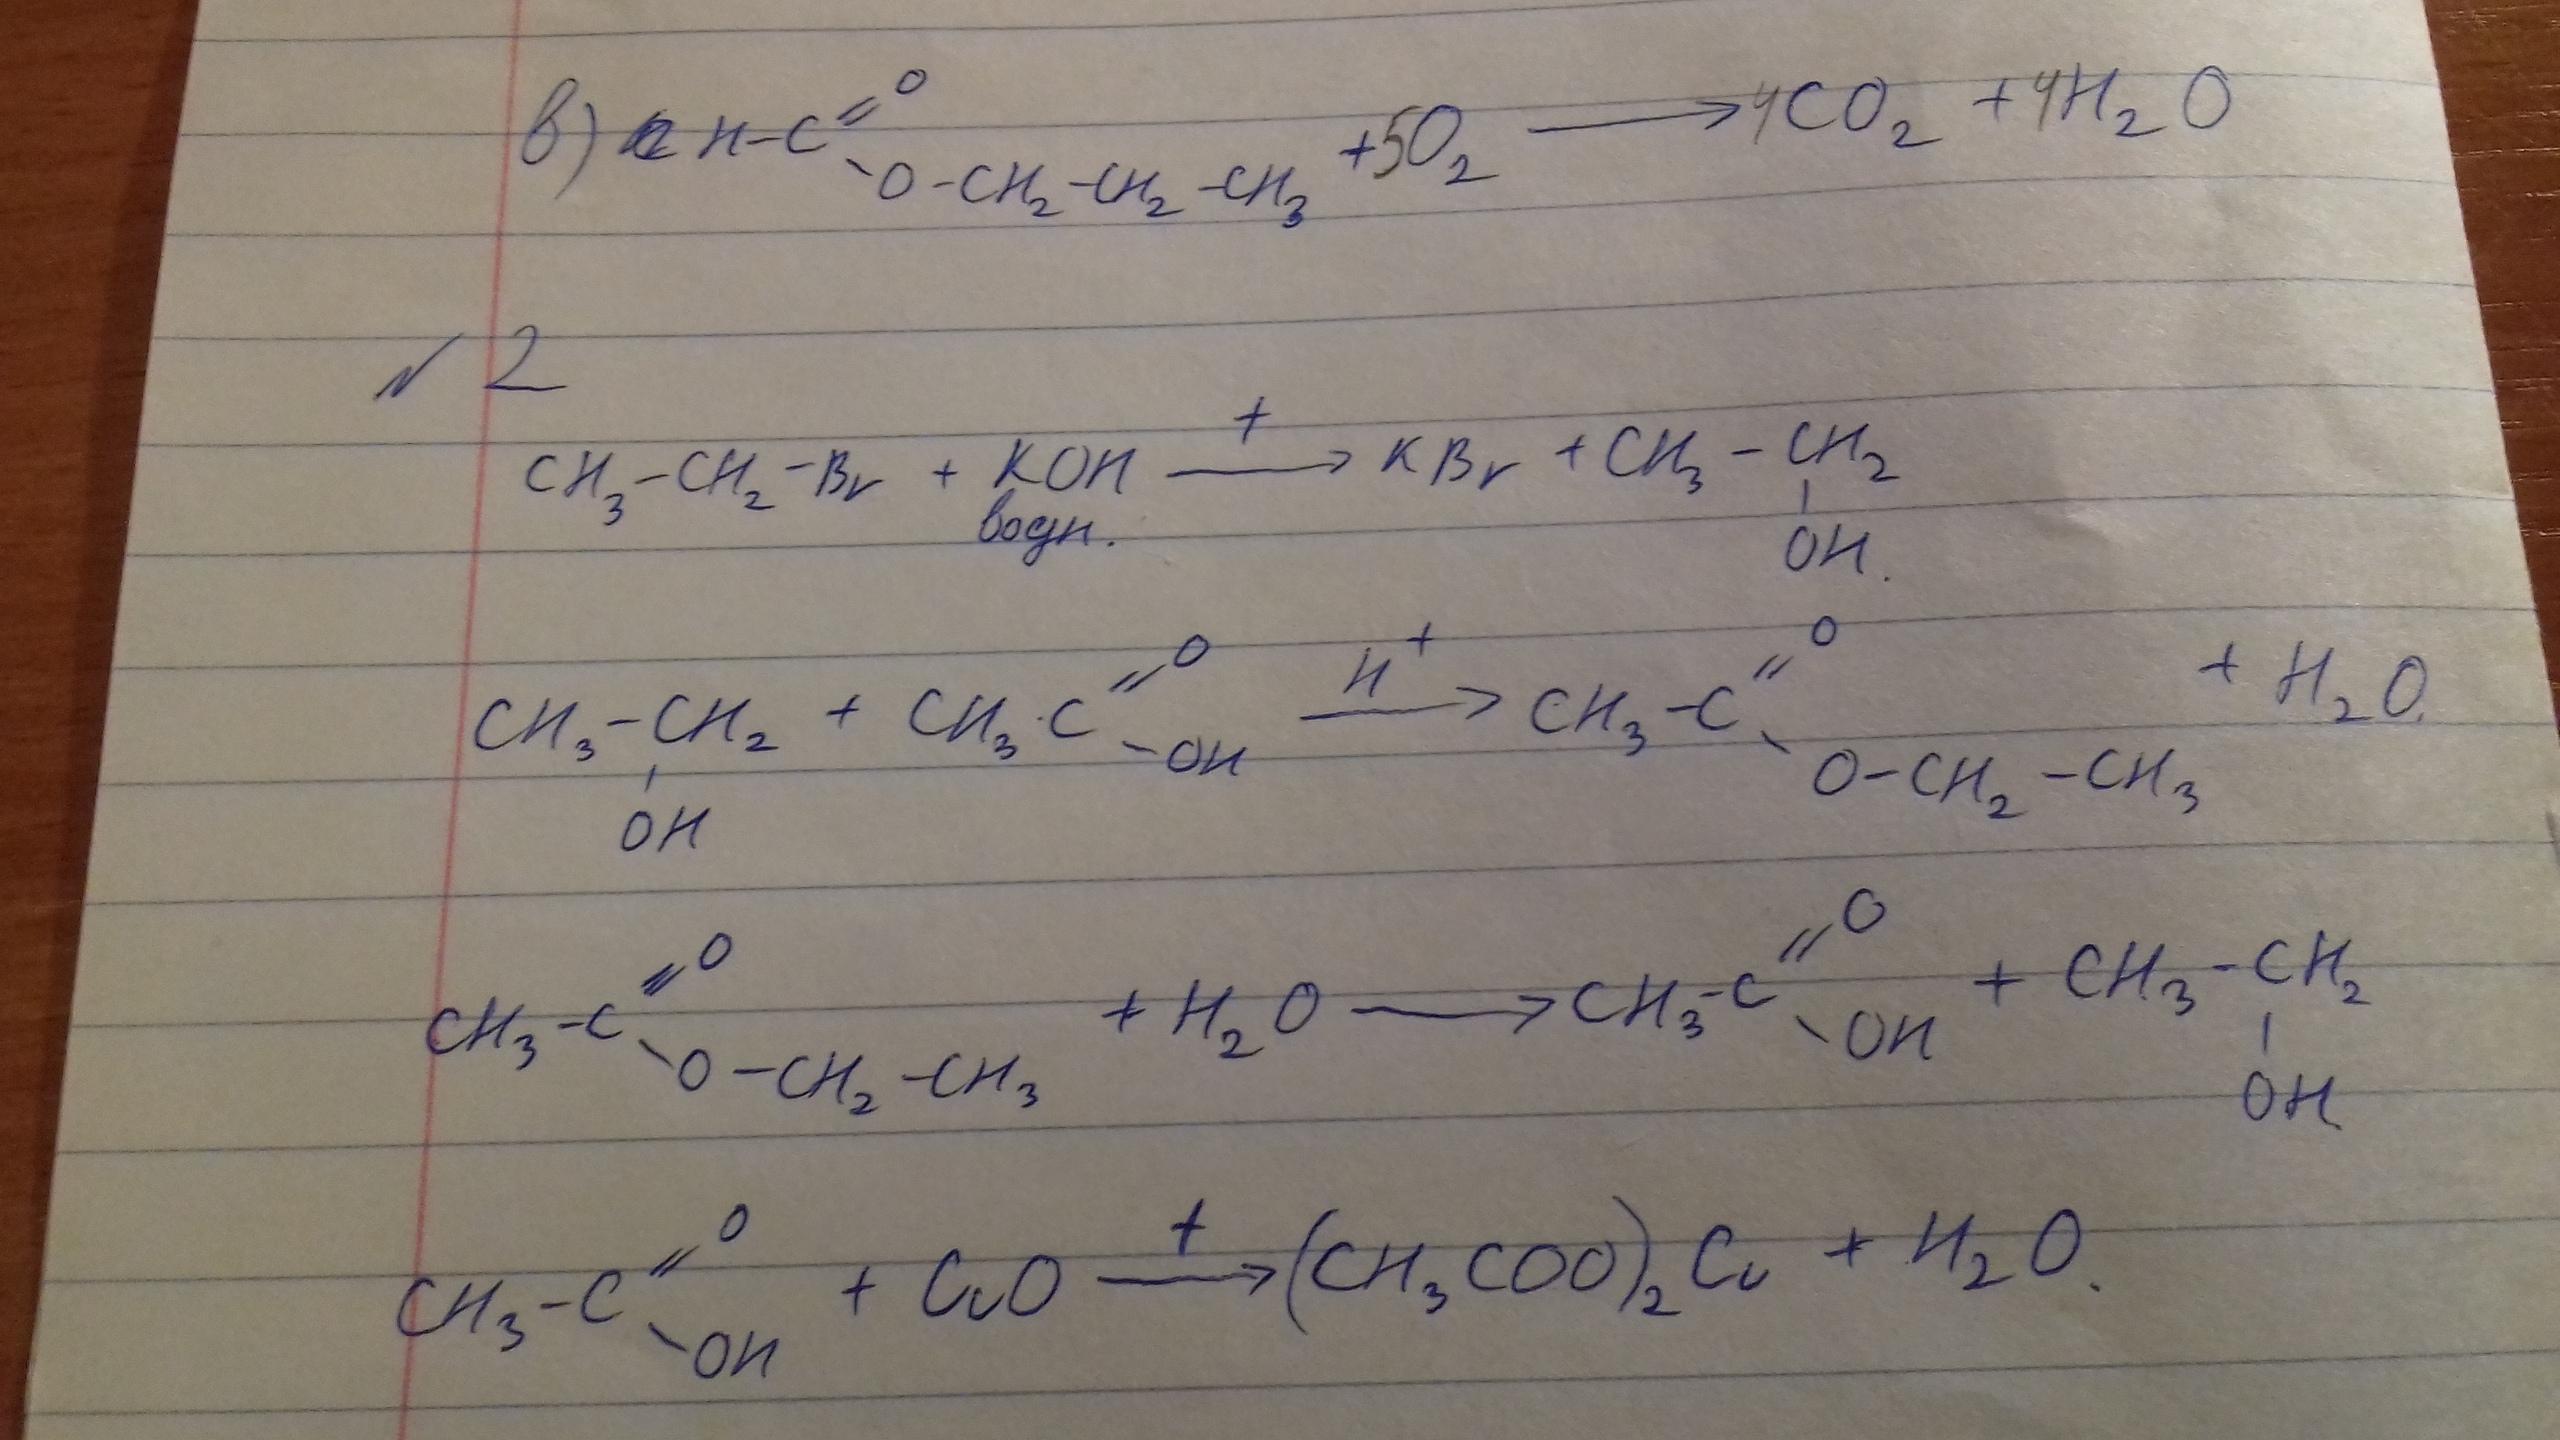 в) H-C=O -O-CH2-CH2-CH3 +5O2 → 4CO2 +4H2O
№2
CH3-CH2-Br + KOH водн. —t→ KBr + CH3-CH2-OH.
CH3-CH2-OH + CH3·C=O -OH —H+→ CH3-C=O -O-CH2-CH3 + H2O.
CH3-C=O -O-CH2-CH3 + H2O → CH3-C=O -OH + CH3-CH2-OH.
CH3-C=O -OH + CuO —t→ (CH3COO)2Cu + H2O.